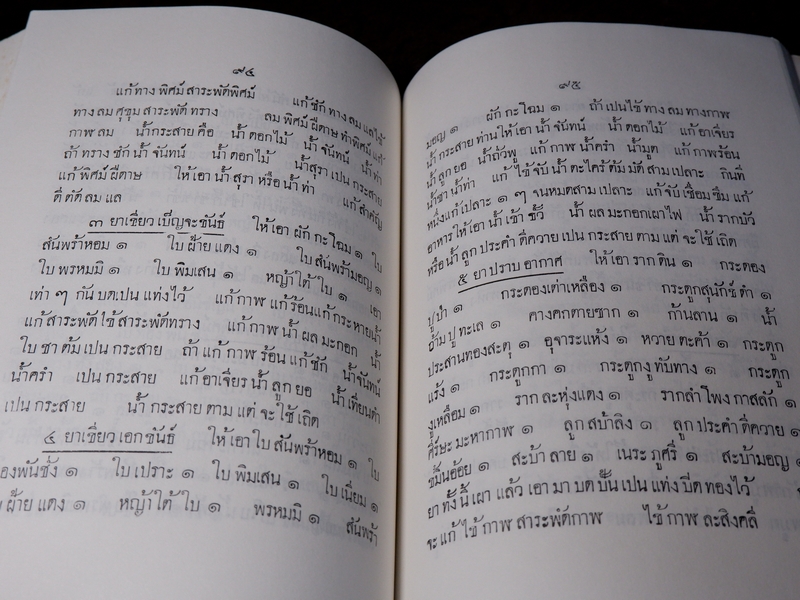 ๙๔
แก้ทาง พิศม์ สาระพัดพิศม์ แก้ ชัก ทาง ลม แลไข้
ทาง ลม ศุขุม สาระพัด ทราง ลม พิศม์ ฝีดาษ ทำพิศม์ แก้
กาพ ลม น้ำกระสาย คือ น้ำ ดอกไม้ น้ำ จันทน์ น้ำ ท่า
ถ้า ทราง ชัก น้ำ จันทน์ น้ำ ดอกไม้ น้ำสุรา เปน กระสาย
แก้ พิศม์ ฝีดาษ ให้ เอา น้ำ สุรา หรือ น้ำ ท่า แก้ สำคัญ
ดี ดัดี ลม แล
๓ ยาเขียว เบ็ญจะขันธ์ ให้ เอา ผัก กะ โฉม ๑ ใบ
สันพร้าหอม ๑ ใบ ฝ้าย แดง ๑ ใบ สันพร้ามอญ ๑
ใบ พรหมมิ ๑ ใบ พิมเสน ๑ หญ้าใต้ ใบ ๑ เอา
เท่า ๆ กัน บดเปน แท่งไว้ แก้ กาพ แก้ร้อนแก้กระหายน้ำ
แก้ สาระพัด ไข้ สาระพัดทราง แก้กาพ น้ำ ผล มะกอก น้ำ
ใบ ชา ต้ม เปน กระสาย ถ้า แก้ กาพ ร้อน แก้ ชัก น้ำจันทน์
น้ำครำ เปน กระสาย แก้ อาเจียร น้ำ ลูก ยอ น้ำ เทียนดำ
เปน กระสาย น้ำ กระสาย ตาม แต่ จะ ใช้ เถิด
๔ ยาเขียว เอก ขันธ์ ให้ เอา ใบ สันพร้าหอม ๑ ใบ
องพันชั่ง ๑ ใบ เปราะ ๑ ใบ พิมเสน ๑ ใบ เนียม ๑
ฝ้าย แดง ๑ หญ้าใต้ ใบ ๑ พรหมมิ ๑ สันพร้า
๙๕
มอญ ๑ ผัก กะ โฉม ๑ ถ้า เปนไข้ ทาง ลม ทางกาพ
น้ำ กระสาย ท่านให้ เอา น้ำ จันทน์ น้ำ ดอกไม้ แก้ อาเจียร
น้ำ ลูก ยอ น้ำถั่วพู แก้ กาพ น้ำครำ น้ำมูต แก้ กาพร้อน
น้ำซา น้ำท่า แก้ ไข้ จับ น้ำ ตะไคร้ ต้ม มัดี สามเปลาะ กินที
หนึ่งแก้เปลาะ ๑ ๆ จนหมดสาม เปลาะ แก้ จับ เชื่อม ซึม แก้
อาหาร ให้ เอา น้ำ เข้า ขั้ว น้ำ ผล มะกอกเผาไฟ น้ำ รากบัว
หรือ น้ำ ลูก ประคำ ดีควาย เปน กระสาย ตาม แต่ จะ ใช้ เถิด
๕ ยา ปราบ อากาศ ให้ เอา ราก ดิน ๑ กระดอง
ปูป่า ๑ กระดองเต่าเหลือง ๑ กระดูกสุนักข์ ดำ ๑
อ้าม ปู ทะเล ๑ คางคกตายซาก ๑ ก้านลาน ๑ น้ำ
ประสานทองสะตุ ๑ อุจาระแห้ง ๑ หวาย ตะค้า ๑ กระดูก
แร้ง ๑ กระดูกกา ๑ กระดูกงู ทับทาง ๑ กระดูก
งูเหลือม ๑ ราก ละหุ่งแดง ๑ รากลำโพง กาสลัก ๑
ศีรษะ มะหากาพ ๑ ลูก สบ้าลิง ๑ ลูก ประคำ ดีควาย ๑
ขมิ้นอ้อย ๑ สะบ้า ลาย ๑ เนระ ภูศรี ๑ สะบ้ามอญ ๑
ยา ทั้ง นี้ เผา แล้ว เอา มา บด ปั้น เปน แท่ง ปิด ทองไว้
จะ แก้ ไข้ กาพ สาระพัดกาพ ไข้ กาพ ละสิงคลี